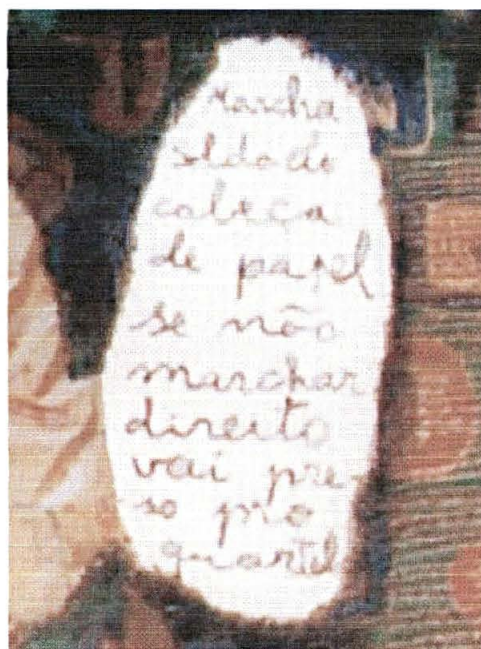 Marcha
soldado
cabeça
de papel
se não
marchar
direito
vai pre-
so pro
quartel